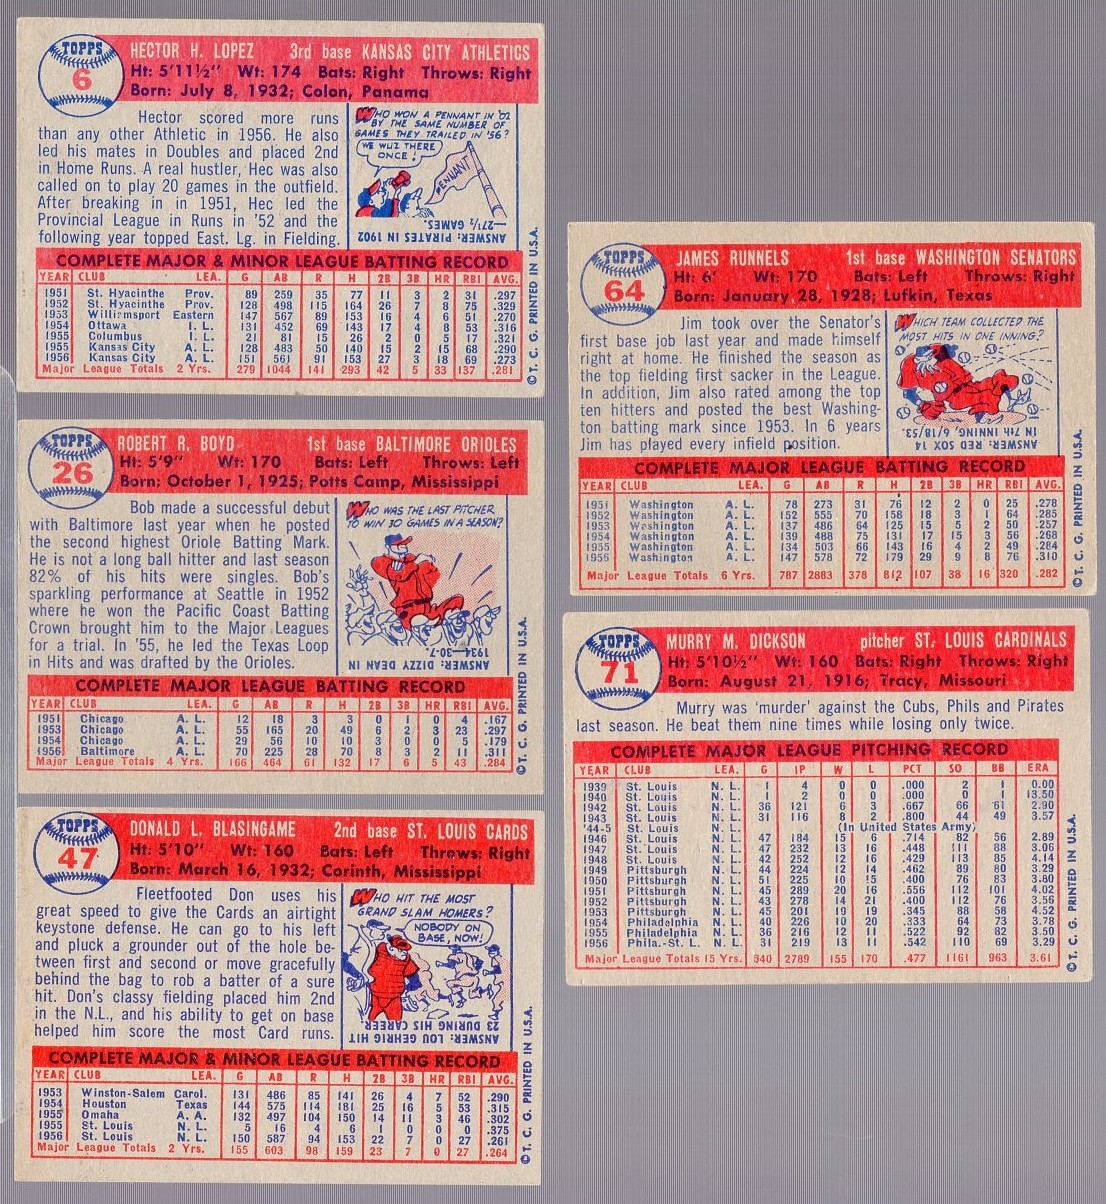 TOPPS
6
HECTOR H. LOPEZ 3rd base KANSAS CITY ATHLETICS
Ht: 5'11½" Wt: 174 Bats: Right Throws: Right
Born: July 8, 1932; Colon, Panama
Hector scored more runs
than any other Athletic in 1956. He also
led his mates in Doubles and placed 2nd
in Home Runs. A real hustler, Hec was also
called on to play 20 games in the outfield.
After breaking in in 1951, Hec led the
Provincial League in Runs in '52 and the
following year topped East. Lg. in Fielding.
WHO WON A PENNANT IN '02
BY THE SAME NUMBER OF
GAMES THEY TRAILED IN '56?
WE WUZ THERE
ONCE!
PENNANT
ANSWER: PIRATES IN 1902
—27½ GAMES.
COMPLETE MAJOR & MINOR LEAGUE BATTING RECORD
YEAR CLUB LEA. G AB R H 2B 3B HR RBI AVG.
1951 St. Hyacinthe Prov. 89 259 35 77 11 3 2 31 .297
1952 St. Hyacinthe Prov. 128 498 115 164 26 7 8 75 .329
1953 Williamsport Eastern 147 567 89 153 16 4 6 51 .270
1954 Ottawa I. L. 131 452 69 143 17 4 8 53 .316
1955 Columbus I. L. 21 81 15 26 2 0 5 17 .321
1955 Kansas City A. L. 128 483 50 140 15 2 15 68 .290
1956 Kansas City A. L. 151 561 91 153 27 3 18 69 .273
Major League Totals 2 Yrs. 279 1044 141 293 42 5 33 137 .281
© T. C. G. PRINTED IN U.S.A.
TOPPS
26
ROBERT R. BOYD 1st base BALTIMORE ORIOLES
Ht: 5'9" Wt: 170 Bats: Left Throws: Left
Born: October 1, 1925; Potts Camp, Mississippi
Bob made a successful debut
with Baltimore last year when he posted
the second highest Oriole Batting Mark.
He is not a long ball hitter and last season
82% of his hits were singles. Bob's
sparkling performance at Seattle in 1952
where he won the Pacific Coast Batting
Crown brought him to the Major Leagues
for a trial. In '55, he led the Texas Loop
in Hits and was drafted by the Orioles.
WHO WAS THE LAST PITCHER
TO WIN 30 GAMES IN A SEASON?
ANSWER: DIZZY DEAN IN
1934—30-7.
COMPLETE MAJOR LEAGUE BATTING RECORD
YEAR CLUB LEA. G AB R H 2B 3B HR RBI AVG.
1951 Chicago A. L. 12 18 3 3 0 1 0 4 .167
1953 Chicago A. L. 55 165 20 49 6 2 3 23 .297
1954 Chicago A. L. 29 56 10 10 3 0 0 5 .179
1956 Baltimore A. L. 70 225 28 70 8 3 2 11 .311
Major League Totals 4 Yrs. 166 464 61 132 17 6 5 43 .284
© T. C. G. PRINTED IN U.S.A.
TOPPS
47
DONALD L. BLASINGAME 2nd base ST. LOUIS CARDS
Ht: 5'10" Wt: 160 Bats: Left Throws: Right
Born: March 16, 1932; Corinth, Mississippi
Fleetfooted Don uses his
great speed to give the Cards an airtight
keystone defense. He can go to his left
and pluck a grounder out of the hole be-
tween first and second or move gracefully
behind the bag to rob a batter of a sure
hit. Don's classy fielding placed him 2nd
in the N.L., and his ability to get on base
helped him score the most Card runs.
WHO HIT THE MOST
GRAND SLAM HOMERS?
NOBODY ON
BASE, NOW!
ANSWER: LOU GEHRIG HIT
23 DURING HIS CAREER
COMPLETE MAJOR & MINOR LEAGUE BATTING RECORD
YEAR CLUB LEA. G AB R H 2B 3B HR RBI AVG.
1953 Winston-Salem Carol. 131 486 85 141 26 4 7 52 .290
1954 Houston Texas 144 575 114 181 25 16 5 53 .315
1955 Omaha A. A. 132 497 104 150 14 11 3 46 .302
1955 St. Louis N. L. 5 16 4 6 1 0 0 0 .375
1956 St. Louis N. L. 150 587 94 153 22 7 0 27 .261
Major League Totals 2 Yrs. 155 603 98 159 23 7 0 27 .264
© T. C. G. PRINTED IN U.S.A.
TOPPS
64
JAMES RUNNELS 1st base WASHINGTON SENATORS
Ht: 6' Wt: 170 Bats: Left Throws: Right
Born: January 28, 1928; Lufkin, Texas
Jim took over the Senator's
first base job last year and made himself
right at home. He finished the season as
the top fielding first sacker in the League.
In addition, Jim also rated among the top
ten hitters and posted the best Washing-
ton batting mark since 1953. In 6 years
Jim has played every infield position.
WHICH TEAM COLLECTED THE
MOST HITS IN ONE INNING?
ANSWER: RED SOX 14
IN 7th INNING, 6/18/53.
COMPLETE MAJOR LEAGUE BATTING RECORD
YEAR CLUB LEA. G AB R H 2B 3B HR RBI AVG.
1951 Washington A. L. 78 273 31 76 12 2 0 25 .278
1952 Washington A. L. 152 555 70 158 18 3 1 64 .285
1953 Washington A. L. 137 486 64 125 15 5 2 50 .257
1954 Washington A. L. 139 488 75 131 17 15 3 56 .268
1955 Washington A. L. 134 503 66 143 16 4 2 49 .284
1956 Washington A. L. 147 578 72 179 29 9 8 76 .310
Major League Totals 6 Yrs. 787 2883 378 812 107 38 16 320 .282
© T. C. G. PRINTED IN U.S.A.
TOPPS
71
MURRY M. DICKSON pitcher ST. LOUIS CARDINALS
Ht: 5'10½" Wt: 160 Bats: Right Throws: Right
Born: August 21, 1916; Tracy, Missouri
Murry was 'murder' against the Cubs, Phils and Pirates
last season. He beat them nine times while losing only twice.
COMPLETE MAJOR LEAGUE PITCHING RECORD
YEAR CLUB LEA. G IP W L PCT SO BB ERA
1939 St. Louis N. L. 1 4 0 0 .000 2 1 0.00
1940 St. Louis N. L. 1 2 0 0 .000 0 1 13.50
1942 St. Louis N. L. 36 121 6 3 .667 66 61 2.90
1943 St. Louis N. L. 31 116 8 2 .800 44 49 3.57
'44-5 St. Louis N. L. (In United States Army)
1946 St. Louis N. L. 47 184 15 6 .714 82 56 2.89
1947 St. Louis N. L. 47 232 13 16 .448 111 88 3.06
1948 St. Louis N. L. 42 252 12 16 .429 113 85 4.14
1949 Pittsburgh N. L. 44 224 12 14 .462 89 80 3.29
1950 Pittsburgh N. L. 51 225 10 15 .400 76 83 3.80
1951 Pittsburgh N. L. 45 289 20 16 .556 112 101 4.02
1952 Pittsburgh N. L. 43 278 14 21 .400 112 76 3.56
1953 Pittsburgh N. L. 45 201 10 19 .345 88 58 4.52
1954 Philadelphia N. L. 40 226 10 20 .333 64 73 3.78
1955 Philadelphia N. L. 36 216 12 11 .522 92 82 3.50
1956 Phila.-St. L. N. L. 31 219 13 11 .542 110 69 3.29
Major League Totals 15 Yrs. 540 2789 155 170 .477 1161 963 3.61
© T. C. G. PRINTED IN U.S.A.